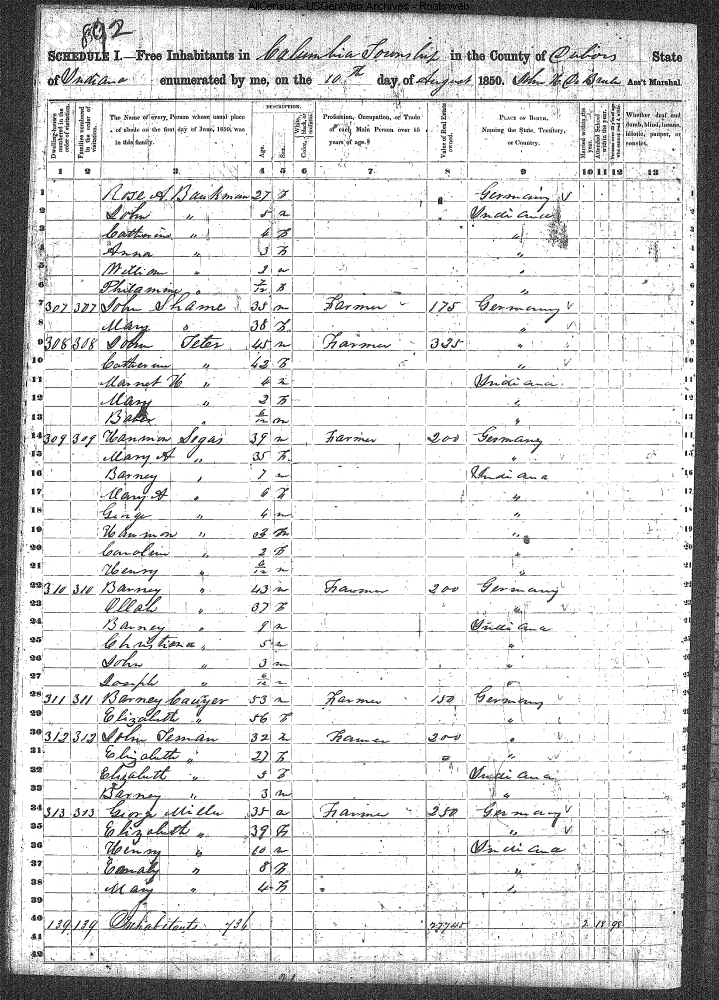 AllCensus - USGenWeb Archives - Rootsweb
892
SCHEDULE I.—Free Inhabitants in Columbia Township in the County of Dubois State
of Indiana enumerated by me, on the 10th day of August 1850. John Ass't Marshal.
Dwelling-houses numbered in the order of visitation.
Families numbered in the order of visitation.
The Name of every Person whose usual place of abode on the first day of June, 1850, was in this family.
DESCRIPTION.
Age.
Sex.
White, black, or mulatto.
Color,
Profession, Occupation, or Trade of each Male Person over 15 years of age.
Value of Real Estate owned.
PLACE OF BIRTH, Naming the State, Territory, or Country.
Married within the year.
Attended School within the year.
Whether deaf and dumb, blind, insane, idiotic, pauper, or convict.
1 2 3 4 5 6 7 8 9 10 11 12 13
1 Rose A. Baukman 27 f Germany
2 John " 5 m Indiana
3 Catherine " 4 f "
4 Anna " 3 f "
5 William " 2 m "
6 Philamine " /12 f "
7 307 307 John Shame 35 m Farmer 175 Germany
8 Mary " 38 f "
9 308 308 John Teter 45 m Farmer 325 "
10 Catherine " 42 f "
11 Marnet H " 4 Indiana
12 Mary " 2 f "
13 6/12 m "
14 309 309 Hanmon Segas 39 m Farmer 200 Germany
15 Mary A " 35 f "
16 Barney " 7 m Indiana
17 Mary A " 6 f "
18 George " 4 m "
19 Hanmon " 3 m "
20 Carolin " 2 f "
21 Henry " 6/12 m "
22 310 310 Barney " 43 m Farmer 200 Germany
23 " 37 f "
24 Barney " 9 m Indiana
25 Christiana " 5 m "
26 John " 3 m "
27 Joseph " 6/12 m "
28 311 311 Barney Cauyer 53 m Farmer 150 Germany
29 Elizabeth " 56 f "
30 312 312 John Seman 32 m Farmer 200 "
31 Elizabeth " 27 f "
32 Elizabeth " 5 f Indiana
33 Barney " 3 m "
34 313 313 George Miller 35 m Farmer 250 Germany
35 Elizabeth " 39 f "
36 Henry " 10 m Indiana
37 " 8 f "
38 Mary " 4 f "
39
40 139 139 Inhabitants 736 27745 2 18 98
41
42